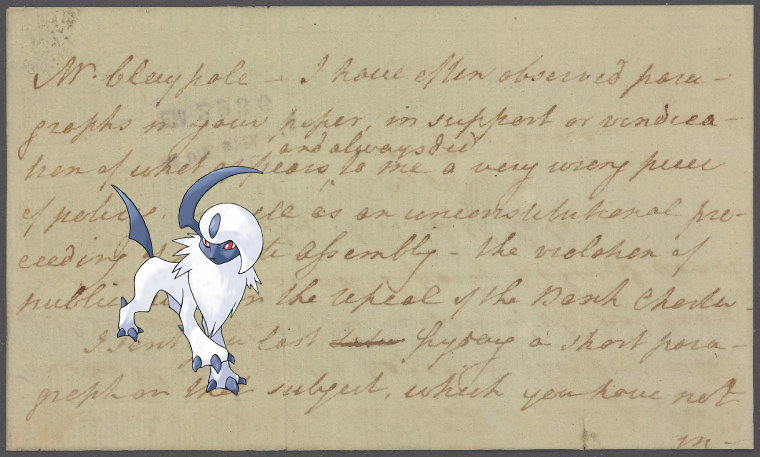 Mr. Claypole - I have often observed para-
graphs in your paper, in support or vindica-
and always did
tion of what appears to me a very wrong piece
of policy, as an unconstitutional pro-
ceeding Assembly - the violation of
public in the repeal of the Bank Charter.
I sent you last fryday a short para-
graph on that subject, which you have not
in-